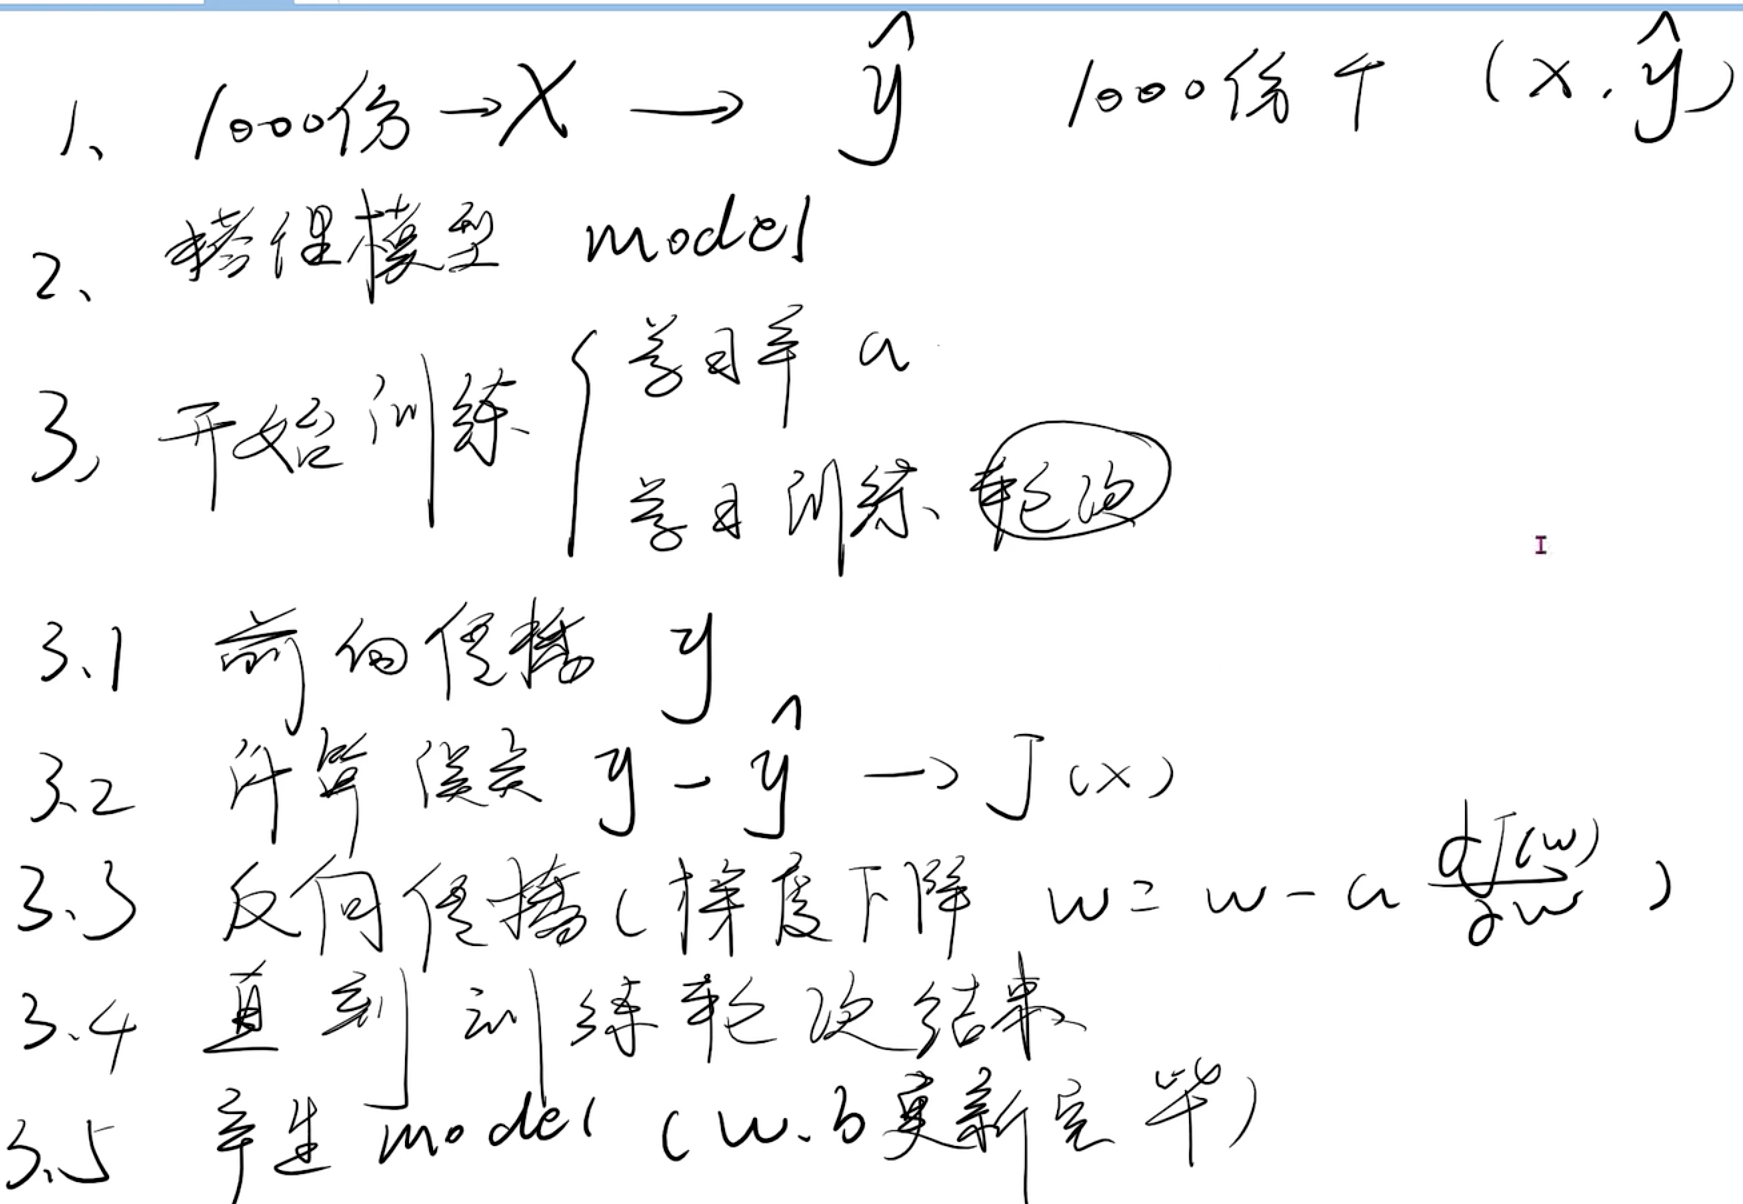 1、 1000份 → X → ŷ 1000份个 (x, ŷ)
2、 搭建模型 model
3、 开始训练 { 学习率 a
学习训练轮次
3.1 前向传播 y
3.2 计算误差 y - ŷ → J(x)
3.3 反向传播 (梯度下降 w = w - a dJ(w)/dw )
3.4 直到训练轮次结束
3.5 产生 model (w.b更新完毕)